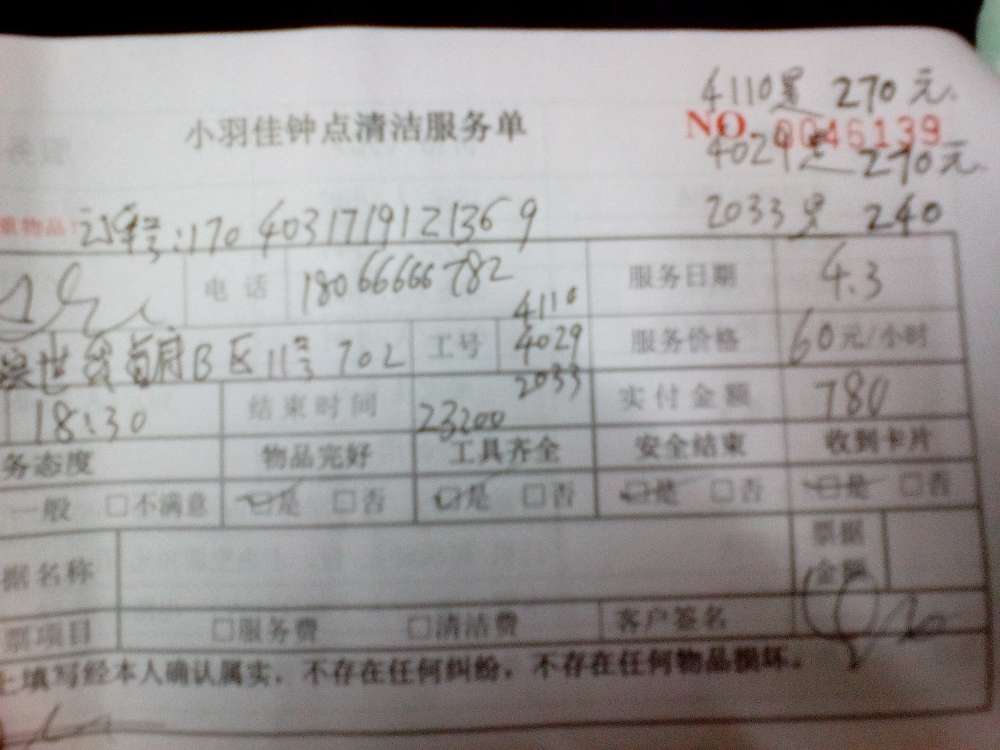 4110是 270元
小羽佳钟点清洁服务单 NO. 0046139
4029是 270元
物品: 订单号:170403171912136 9 2033是 240
电话 18066666782 服务日期 4.3
府B区11号702 工号 4110 4029 2033 服务价格 60元/小时
18:30 结束时间 23:00 实付金额 780
务态度 物品完好 工具齐全 安全结束 收到卡片
一般 □不满意 □是 □否 □是 □否 □是 □否 □是 □否
据名称 票据金额
票项目 □服务费 □清洁费 客户签名
上填写经本人确认属实，不存在任何纠纷，不存在任何物品损坏。